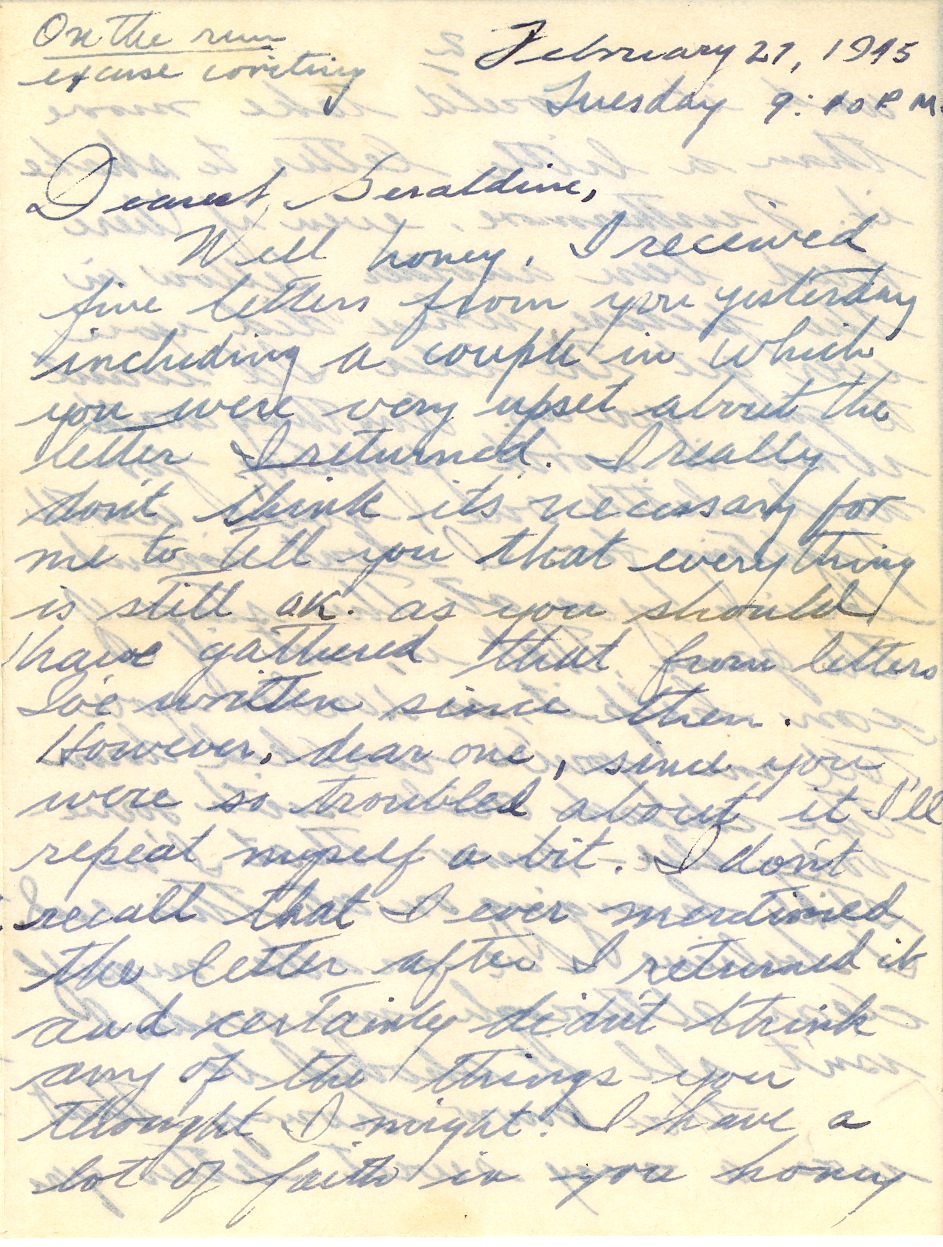 On the run
excuse writing
February 27, 1945
Tuesday 9:10 P.M.
Dearest Geraldine,
Well honey, I received
five letters from you yesterday
including a couple in which
you were very upset about the
letter I returned. I really
don't think it's necessary for
me to tell you that everything
is still OK. as you should
have gathered that from letters
I've written since then.
However, dear one, since you
were so troubled about it I'll
repeat myself a bit. I don't
recall that I ever mentioned
the letter after I returned it
and certainly didn't think
any of the things you
thought I might. I have a
lot of faith in you honey